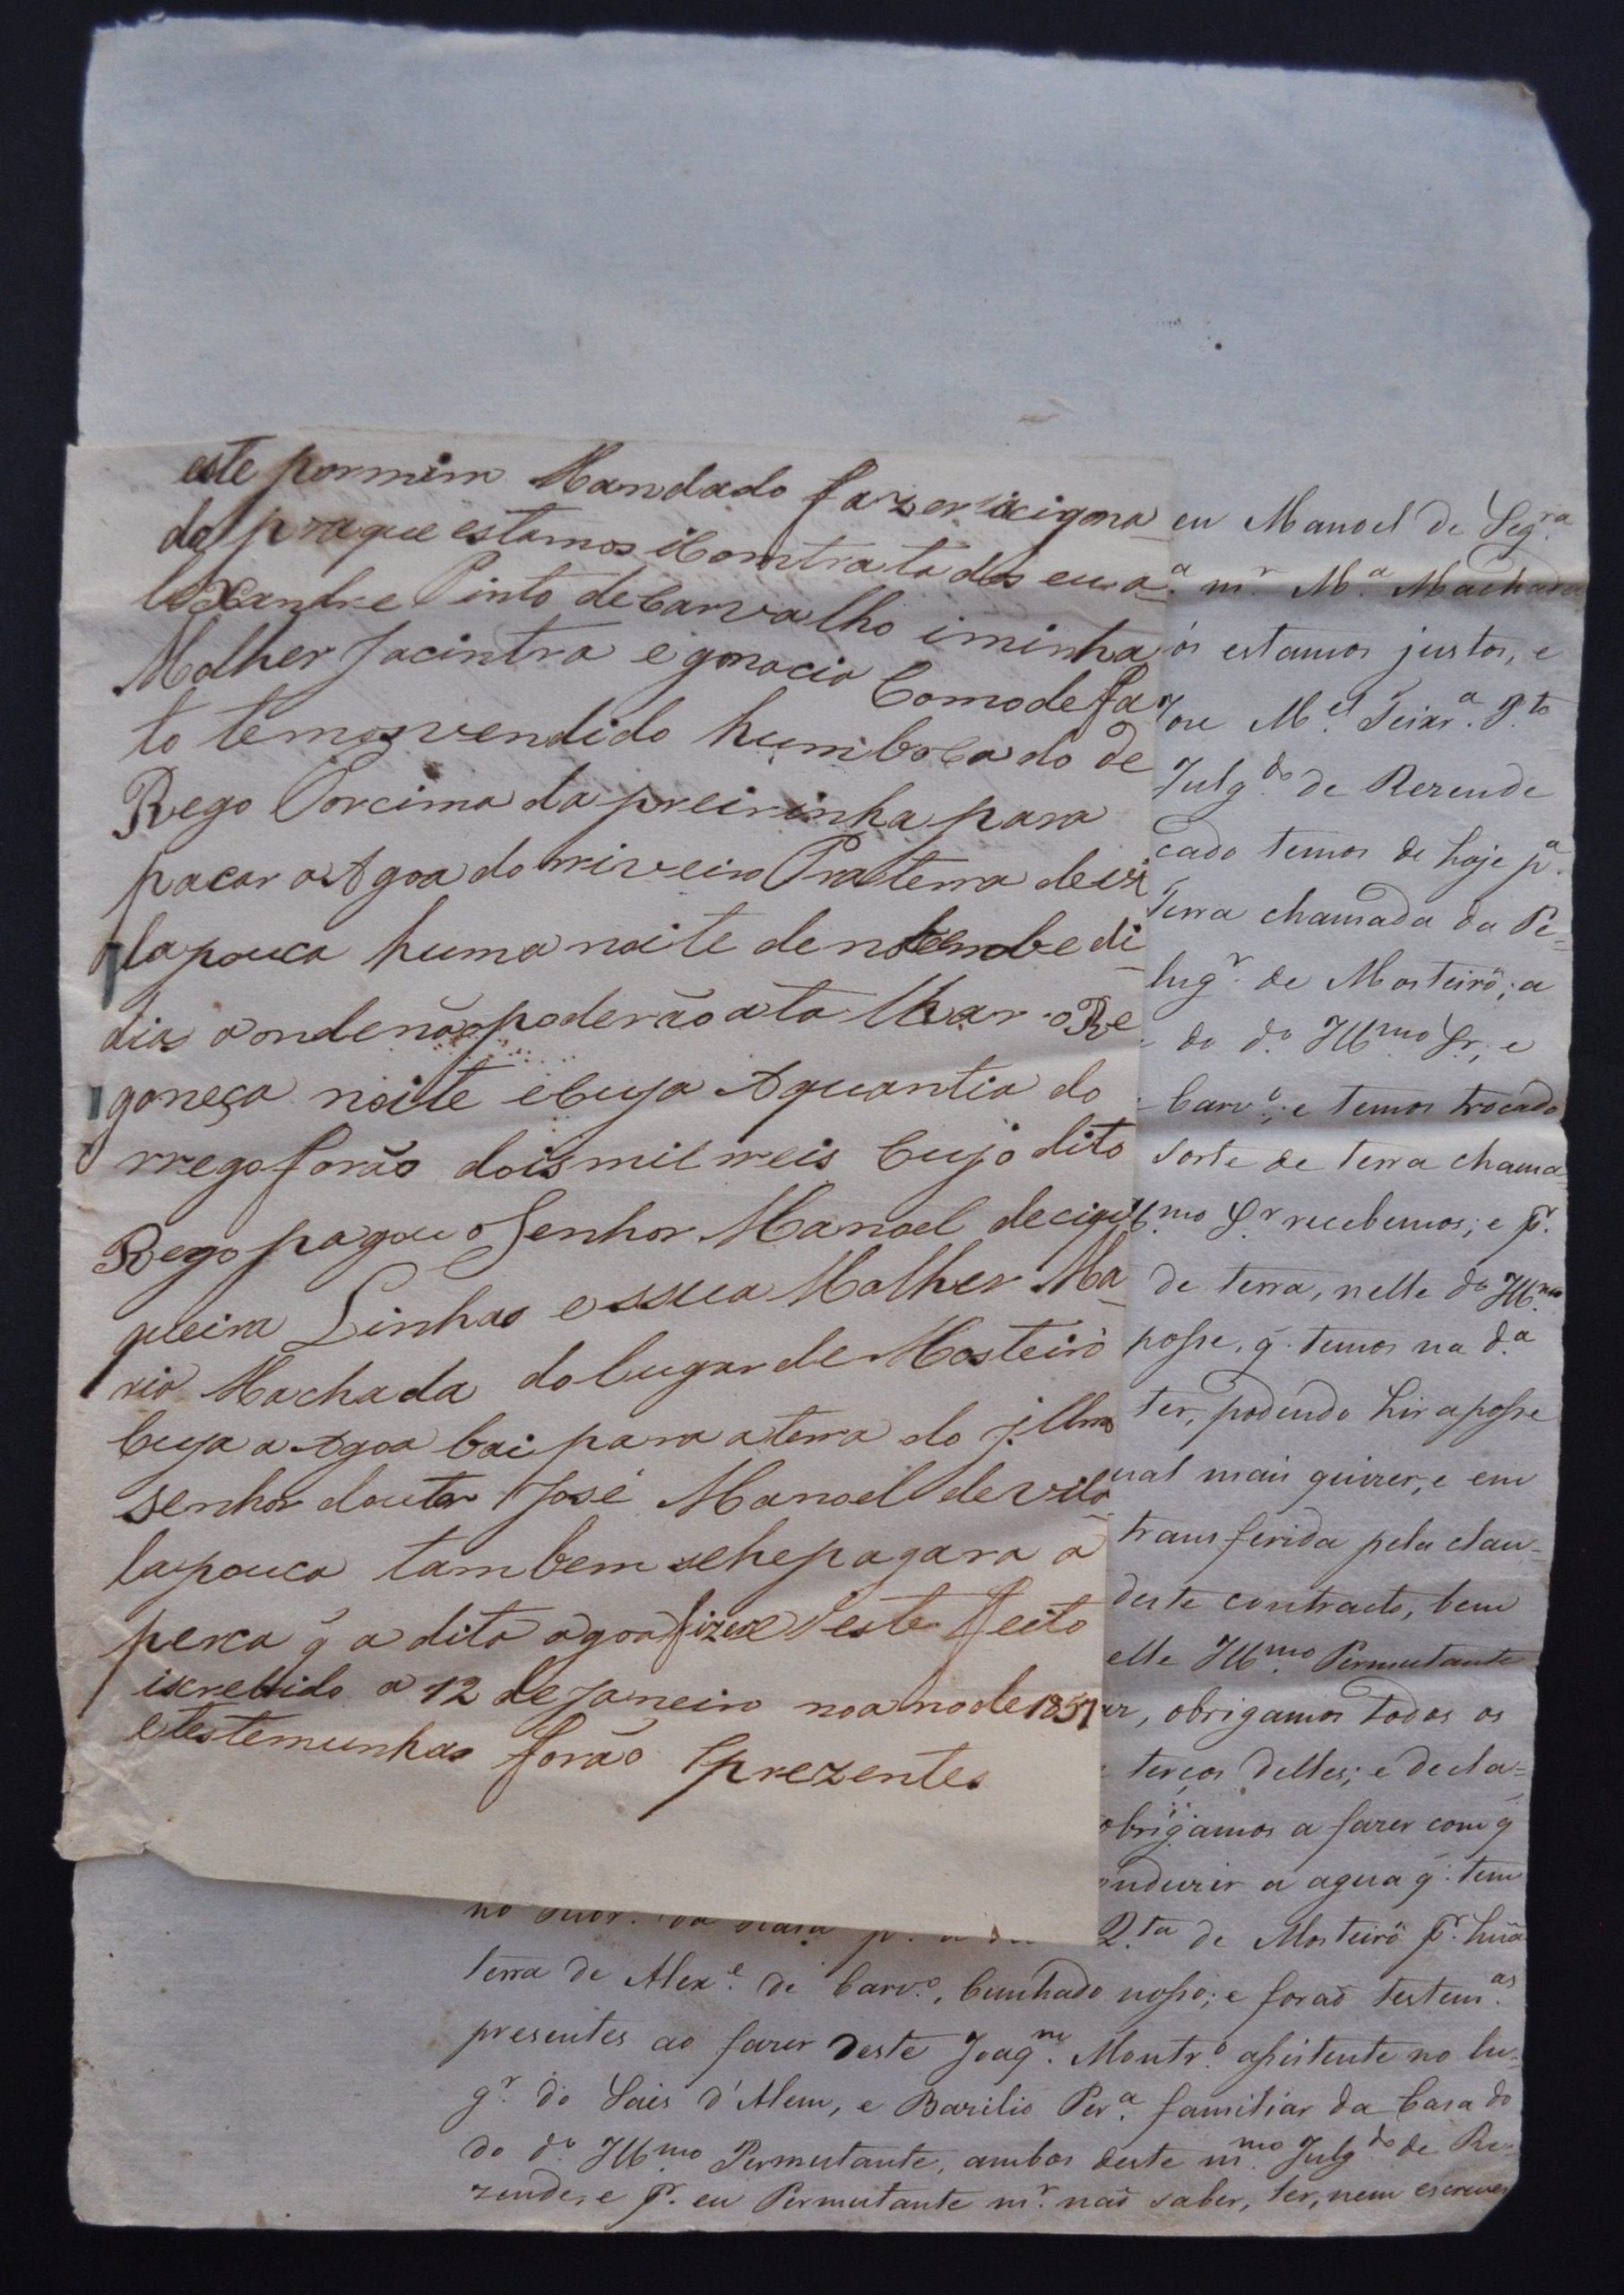 este pormim Mandado fazer iacigna
do praque estamos i Comtratados eu a
lexandre Pinto de Carvalho i minha
Molher Jacintra egnacia Como de fa
to temos vendido hum bocado de
Rego Porcima da preirinha para
pacar a Agoa do rriveiro Pra terra de vi
la pouca huma noite de nobembe di
dias a onde não poderão atalhar o Re
goneça noite e Cuja Aquantia do
rrego forão dois mil rreis Cujo dito
Rego pagou o Senhor Manoel de cigu
queira Linhas e ssua Molher Ma
ria Machada do lugar de Mosteirô
Cuja a Agoa bai para a terra do illmo
senhor doutor José Manoel de vila
la pouca tambem selhe pagara a
perca q̃ a dita agoa fizere i este feito
iscrebido a 12 de Janeiro no anno de 1857
e testemunhas forão prezentes
eu Manoel de Seqr.ª
.ª m.r M.ª Machada
ós estamos justos, e
Joze M.el Teixr.ª P.to
Julg.do de Rezende
cado temos de hoje p.ª
Terra chamada da Pe=
lug.r de Mosteirô; a
do d.º Ill.mo Sr., e
Carv.º; e temos trocado
sorte de terra chama
Ill.mo S.r recebemos; e p.r
de terra, nelle d.º Ill.mo
posse, q̃ temos na d.ª
ter, podendo hir a posse
ual mais quizer, e em
transferida pela clau=
deste contracto, bem
elle Ill.mo Permutante
ar, obrigamos todos os
terços delles; e decla=
obrigamos a fazer com q̃
onduzir a agua q̃ tem
Q.ta de Mosteirô p.r huã
terra de Alex.e de Carv.º, Cunhado nosso; e foraõ testem.as
presentes ao fazer deste Joaq.m Montr.º assistente no lu=
g.r do Sais d'Alem, e Bazilio Per.ª familiar da Casa do
do d.º Ill.mo Permutante, ambos deste m.mo Julg.do de Re=
zende, e p.r eu Permutante m.r naõ saber, ler, nem escrever